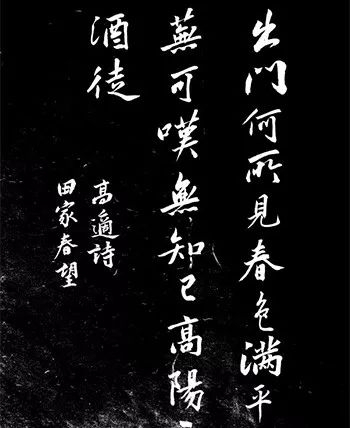 出門何所見春色滿平
蕪可嘆無知己高陽一
酒徒
高適詩
田家春望